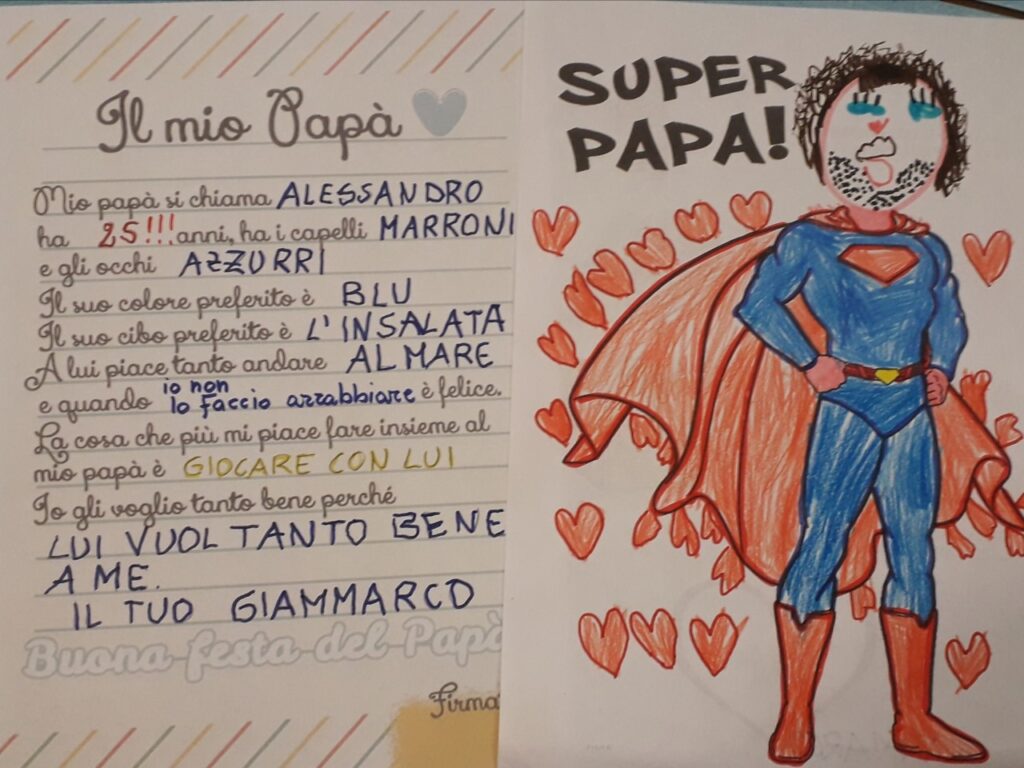 Il mio Papà
Mio papà si chiama ALESSANDRO
ha 25!!! anni, ha i capelli MARRONI
e gli occhi AZZURRI
Il suo colore preferito è BLU
Il suo cibo preferito è L'INSALATA
A lui piace tanto andare AL MARE
e quando io non lo faccio arrabbiare è felice.
La cosa che più mi piace fare insieme al
mio papà è GIOCARE CON LUI
Io gli voglio tanto bene perché
LUI VUOL TANTO BENE
A ME.
IL TUO GIAMMARCO
Buona festa del Papà
Firma
SUPER
PAPA!